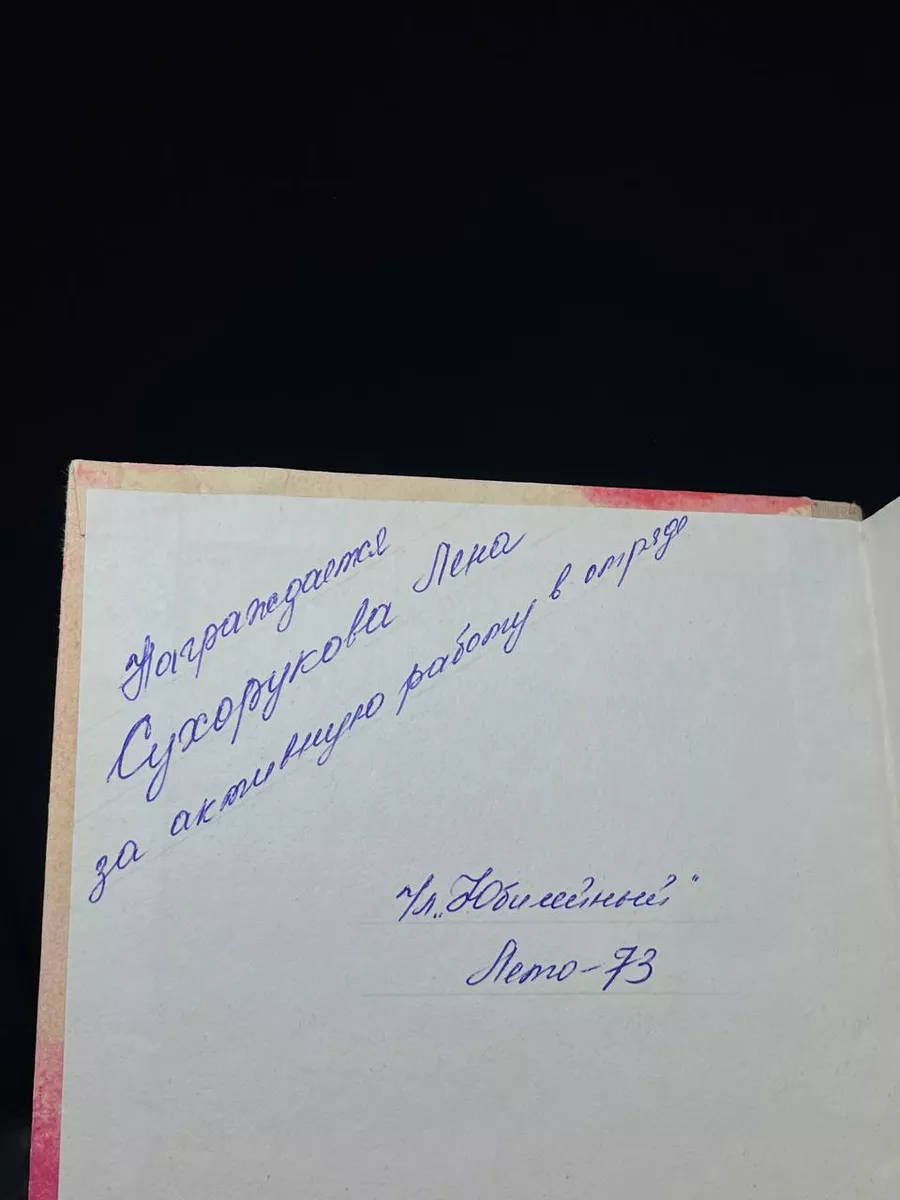 Награждается
Сухорукова Лена
за активную работу в отряде
п/л „Юбилейный"
Лето-73